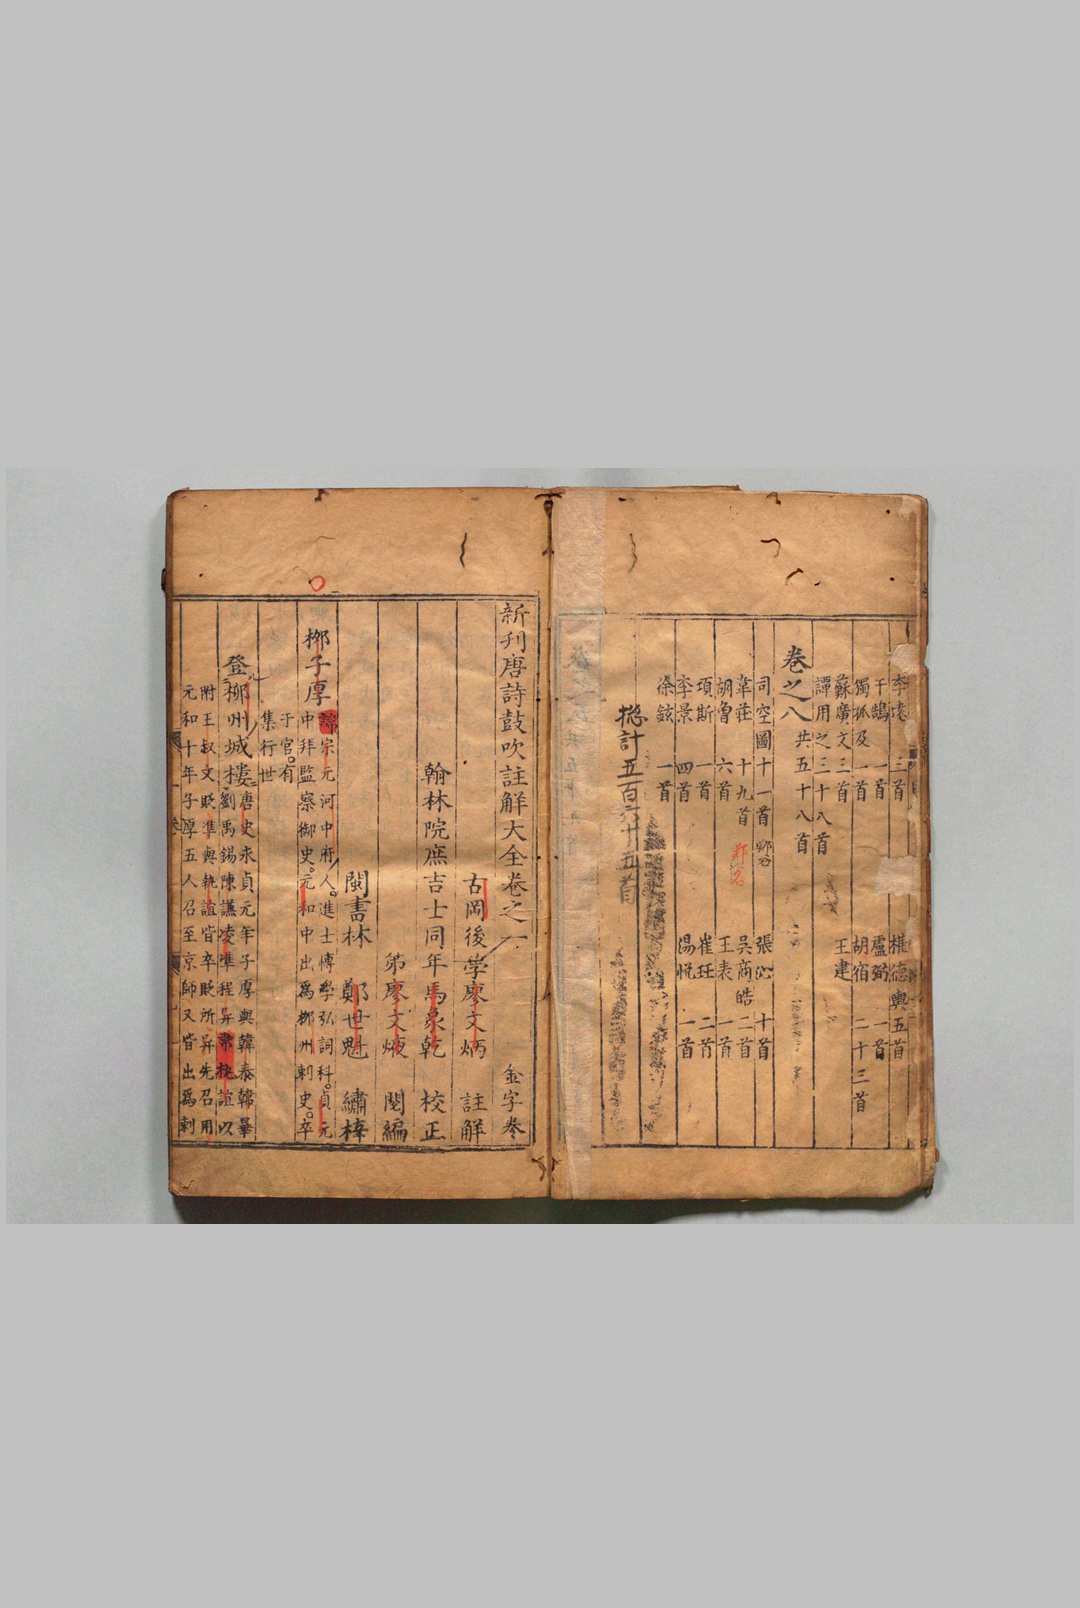 三首
于鵠 一首
盧弼 一首
獨孤及 一首
胡宿 二十三首
蘇廣文 三首
王建
譚用之 三十八首
卷之八 共五十八首
司空圖 十一首
張泌 十首
韋莊 十九首
吳商皓 二首
胡曾 六首
王表 一首
項斯 一首
崔珏 二首
李景 四首
湯悅 一首
徐鉉 一首
捴計五百六十五首
新刊唐詩鼓吹註解大全卷之一 金字卷
古岡後學廖文炳 註解
翰林院庶吉士同年馬象乾 校正
弟廖文 閱編
閩書林 鄭世魁 繡梓
柳子厚
諱宗元河中府人進士博學弘詞科貞元
中拜監察御史元和中出為柳州刺史卒
于官有
集行世
登柳州城樓
唐史永貞元年子厚與韓泰韓曄
劉禹錫陳諫凌準程异韋執誼以
附王叔文貶準與執誼皆卒貶所异先召用
元和十年子厚五人召至京師又皆出為刺